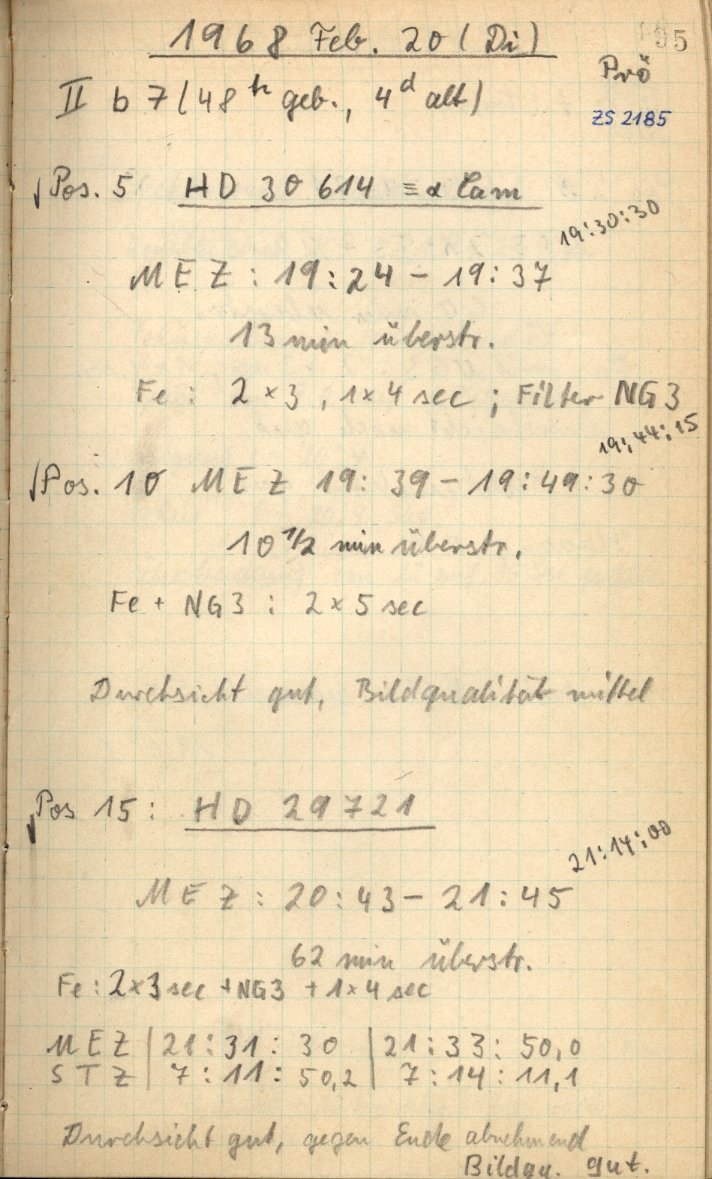 1968 Feb. 20 (Di)
95
Prö
II b 7 (48h geb., 4d alt)
ZS 2185
√Pos. 5 HD 30614 ≡ α Cam
19:30:30
MEZ : 19:24 – 19:37
13 min überstr.
Fe : 2×3, 1×4 sec ; Filter NG3
19:44:15
√Pos. 10 MEZ 19:39 – 19:49:30
10 1/2 min überstr.
Fe + NG3 : 2×5 sec
Durchsicht gut, Bildqualität mittel
√Pos 15 : HD 29721
21:14:00
MEZ : 20:43 – 21:45
62 min überstr.
Fe : 2×3 sec + NG3 + 1×4 sec
MEZ | 21:31:30 | 21:33:50,0
STZ | 7:11:50,2 | 7:14:11,1
Durchsicht gut, gegen Ende abnehmend
Bildqu. gut.